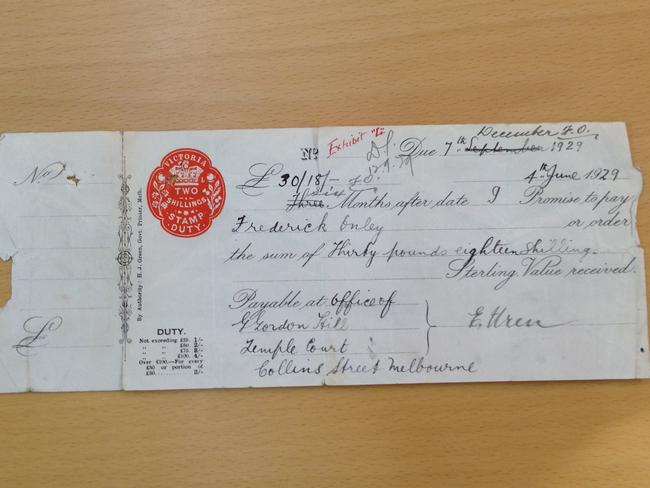 No
£
By Authority: H. J. Green, Govt. Printer, Melb.
VICTORIA
TWO
SHILLINGS
STAMP
DUTY.
DUTY.
Not exceeding £25. 1/-
" " £50. 2/-
" " £75. 3/-
" " £100. 4/-
Over £100.—For every
£50 or portion of
£50. 2/-
No
Exhibit "L"
December F.O.
Due 7th September 1929
£ 30/18/-
4th June 1929
Six
Three Months after date I Promise to pay
Frederick Onley or order
the sum of Thirty pounds eighteen shilling.
Sterling Value received.
Payable at office of
G Gordon Hill
Temple Court
Collins Street Melbourne
E. Uren